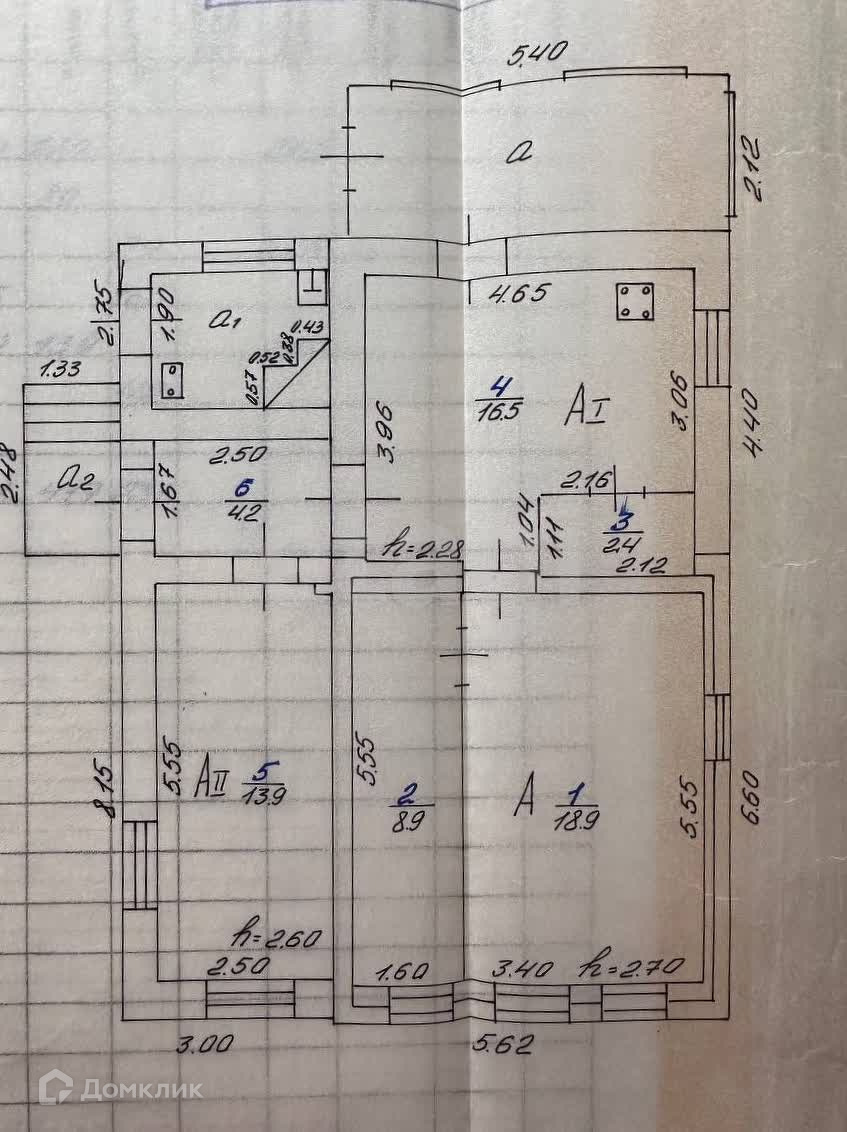 5.40
а
2.12
2.75
1.90
а₁
0.43
0.38
0.52
0.57
4.65
1.33
2.48
а₂
2.50
1.67
6
4.2
3.96
4
16.5
АI
3.06
4.40
2.16
1.04
1.11
3
2.4
2.12
h=2.28
8.15
5.55
АII
5
13.9
h=2.60
2.50
3.00
5.55
2
8.9
1.60
А
1
18.9
5.55
6.60
3.40
h=2.70
5.62
Домклик